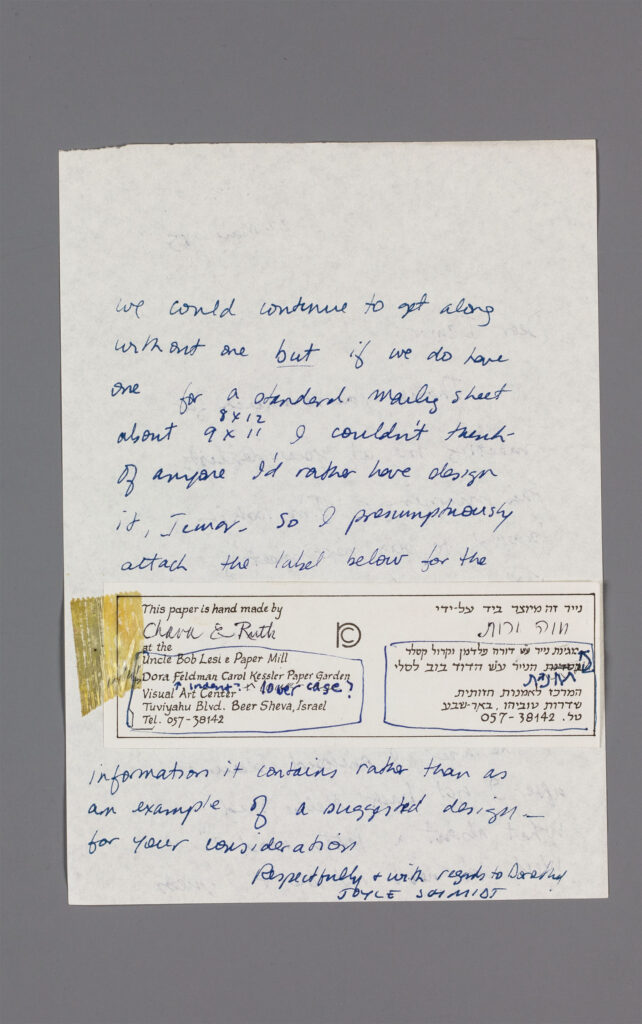 we could continue to get along
without one but if we do have
one for a standard. mailing sheet
8 x 12
about 9 x 11 I couldn't think
of anyone I'd rather have design
it, Ismar. So I presumptuously
attach the label below for the
This paper is hand made by
Chava & Ruth
at the
Uncle Bob Leslie Paper Mill
Dora Feldman Carol Kessler Paper Garden
↑ indent - lower case?
Visual Art Center
Tuviyahu Blvd. Beer Sheva, Israel
Tel. 057-38142
נייר זה מיוצר ביד על-ידי
חוה ורות
גינת נייר ע״ש דורה פלדמן וקרול קסלר
הנייר ע״ש הדוד בוב לסלי
המרכז לאמנות חזותית
שדרות טוביהו, באר-שבע
טל. 057-38142
information it contains rather than as
an example of a suggested design -
for your consideration
Respectfully + with regards to Dorothy
JOYCE SCHMIDT